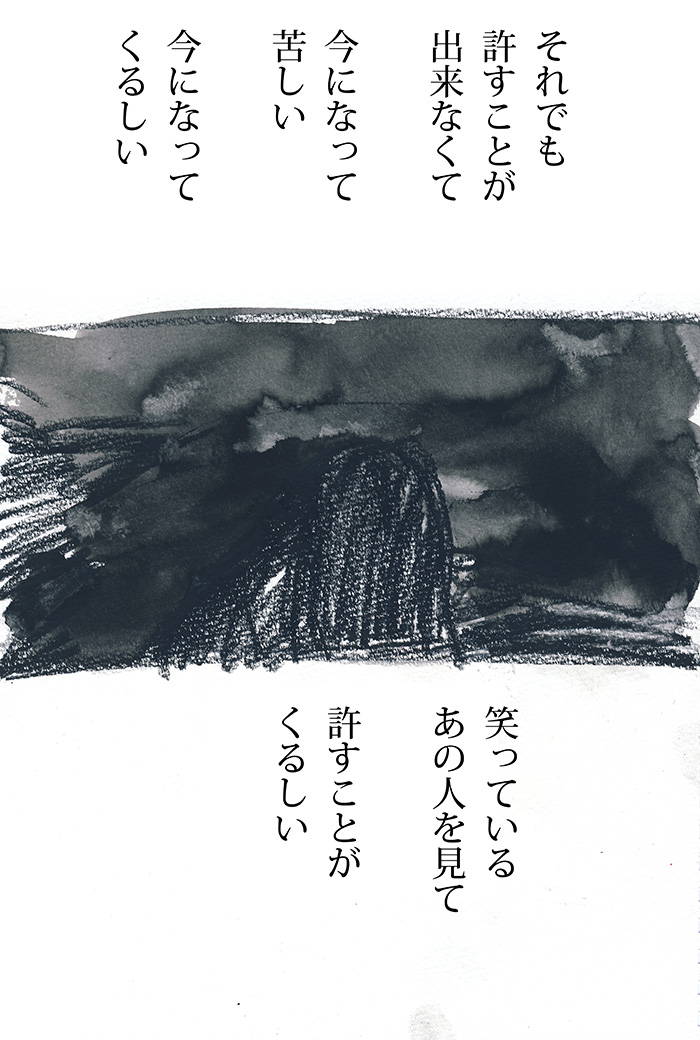 それでも
許すことが
出来なくて
今になって
苦しい
今になって
くるしい
笑っている
あの人を見て
許すことが
くるしい